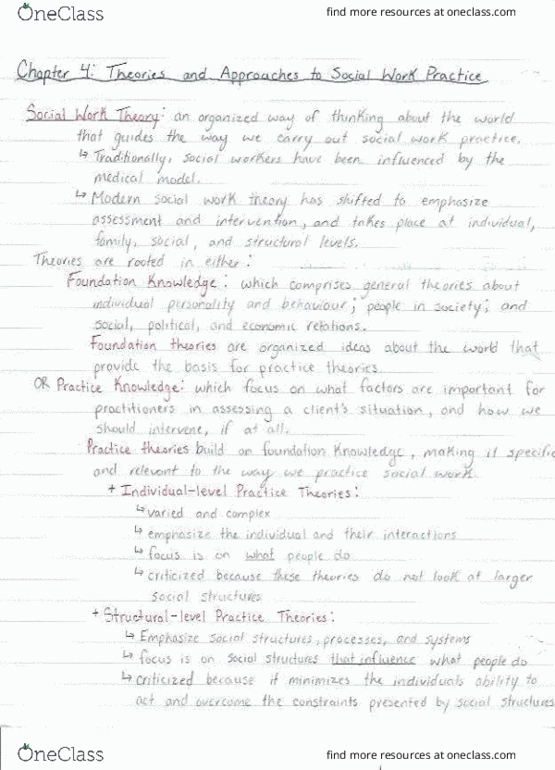 OneClass
find more resources at oneclass.com
Chapter 4: Theories and Approaches to Social Work Practice
Social Work Theory: an organized way of thinking about the world
that guides the way we carry out social work practice.
↳ Traditionally, social workers have been influenced by the
medical model.
↳ Modern social work theory has shifted to emphasize
assessment and intervention, and takes place at individual,
family, social, and structural levels.
Theories are rooted in either:
Foundation Knowledge: which comprises general theories about
individual personality and behaviour; people in society; and
social, political, and economic relations.
Foundation theories are organized ideas about the world that
provide the basis for practice theories.
OR Practice Knowledge: which focus on what factors are important for
practitioners in assessing a client's situation, and how we
should intervene, if at all.
Practice theories build on foundation knowledge, making it specific
and relevant to the way we practice social work.
+ Individual-level Practice Theories:
↳ varied and complex
↳ emphasize the individual and their interactions
↳ focus is on what people do
↳ criticized because these theories do not look at larger
social structures
+ Structural-level Practice Theories:
↳ Emphasize social structures, processes, and systems
↳ focus is on social structures that influence what people do
↳ criticized because it minimizes the individuals ability to
act and overcome the constraints presented by social structures
OneClass
find more resources at oneclass.com